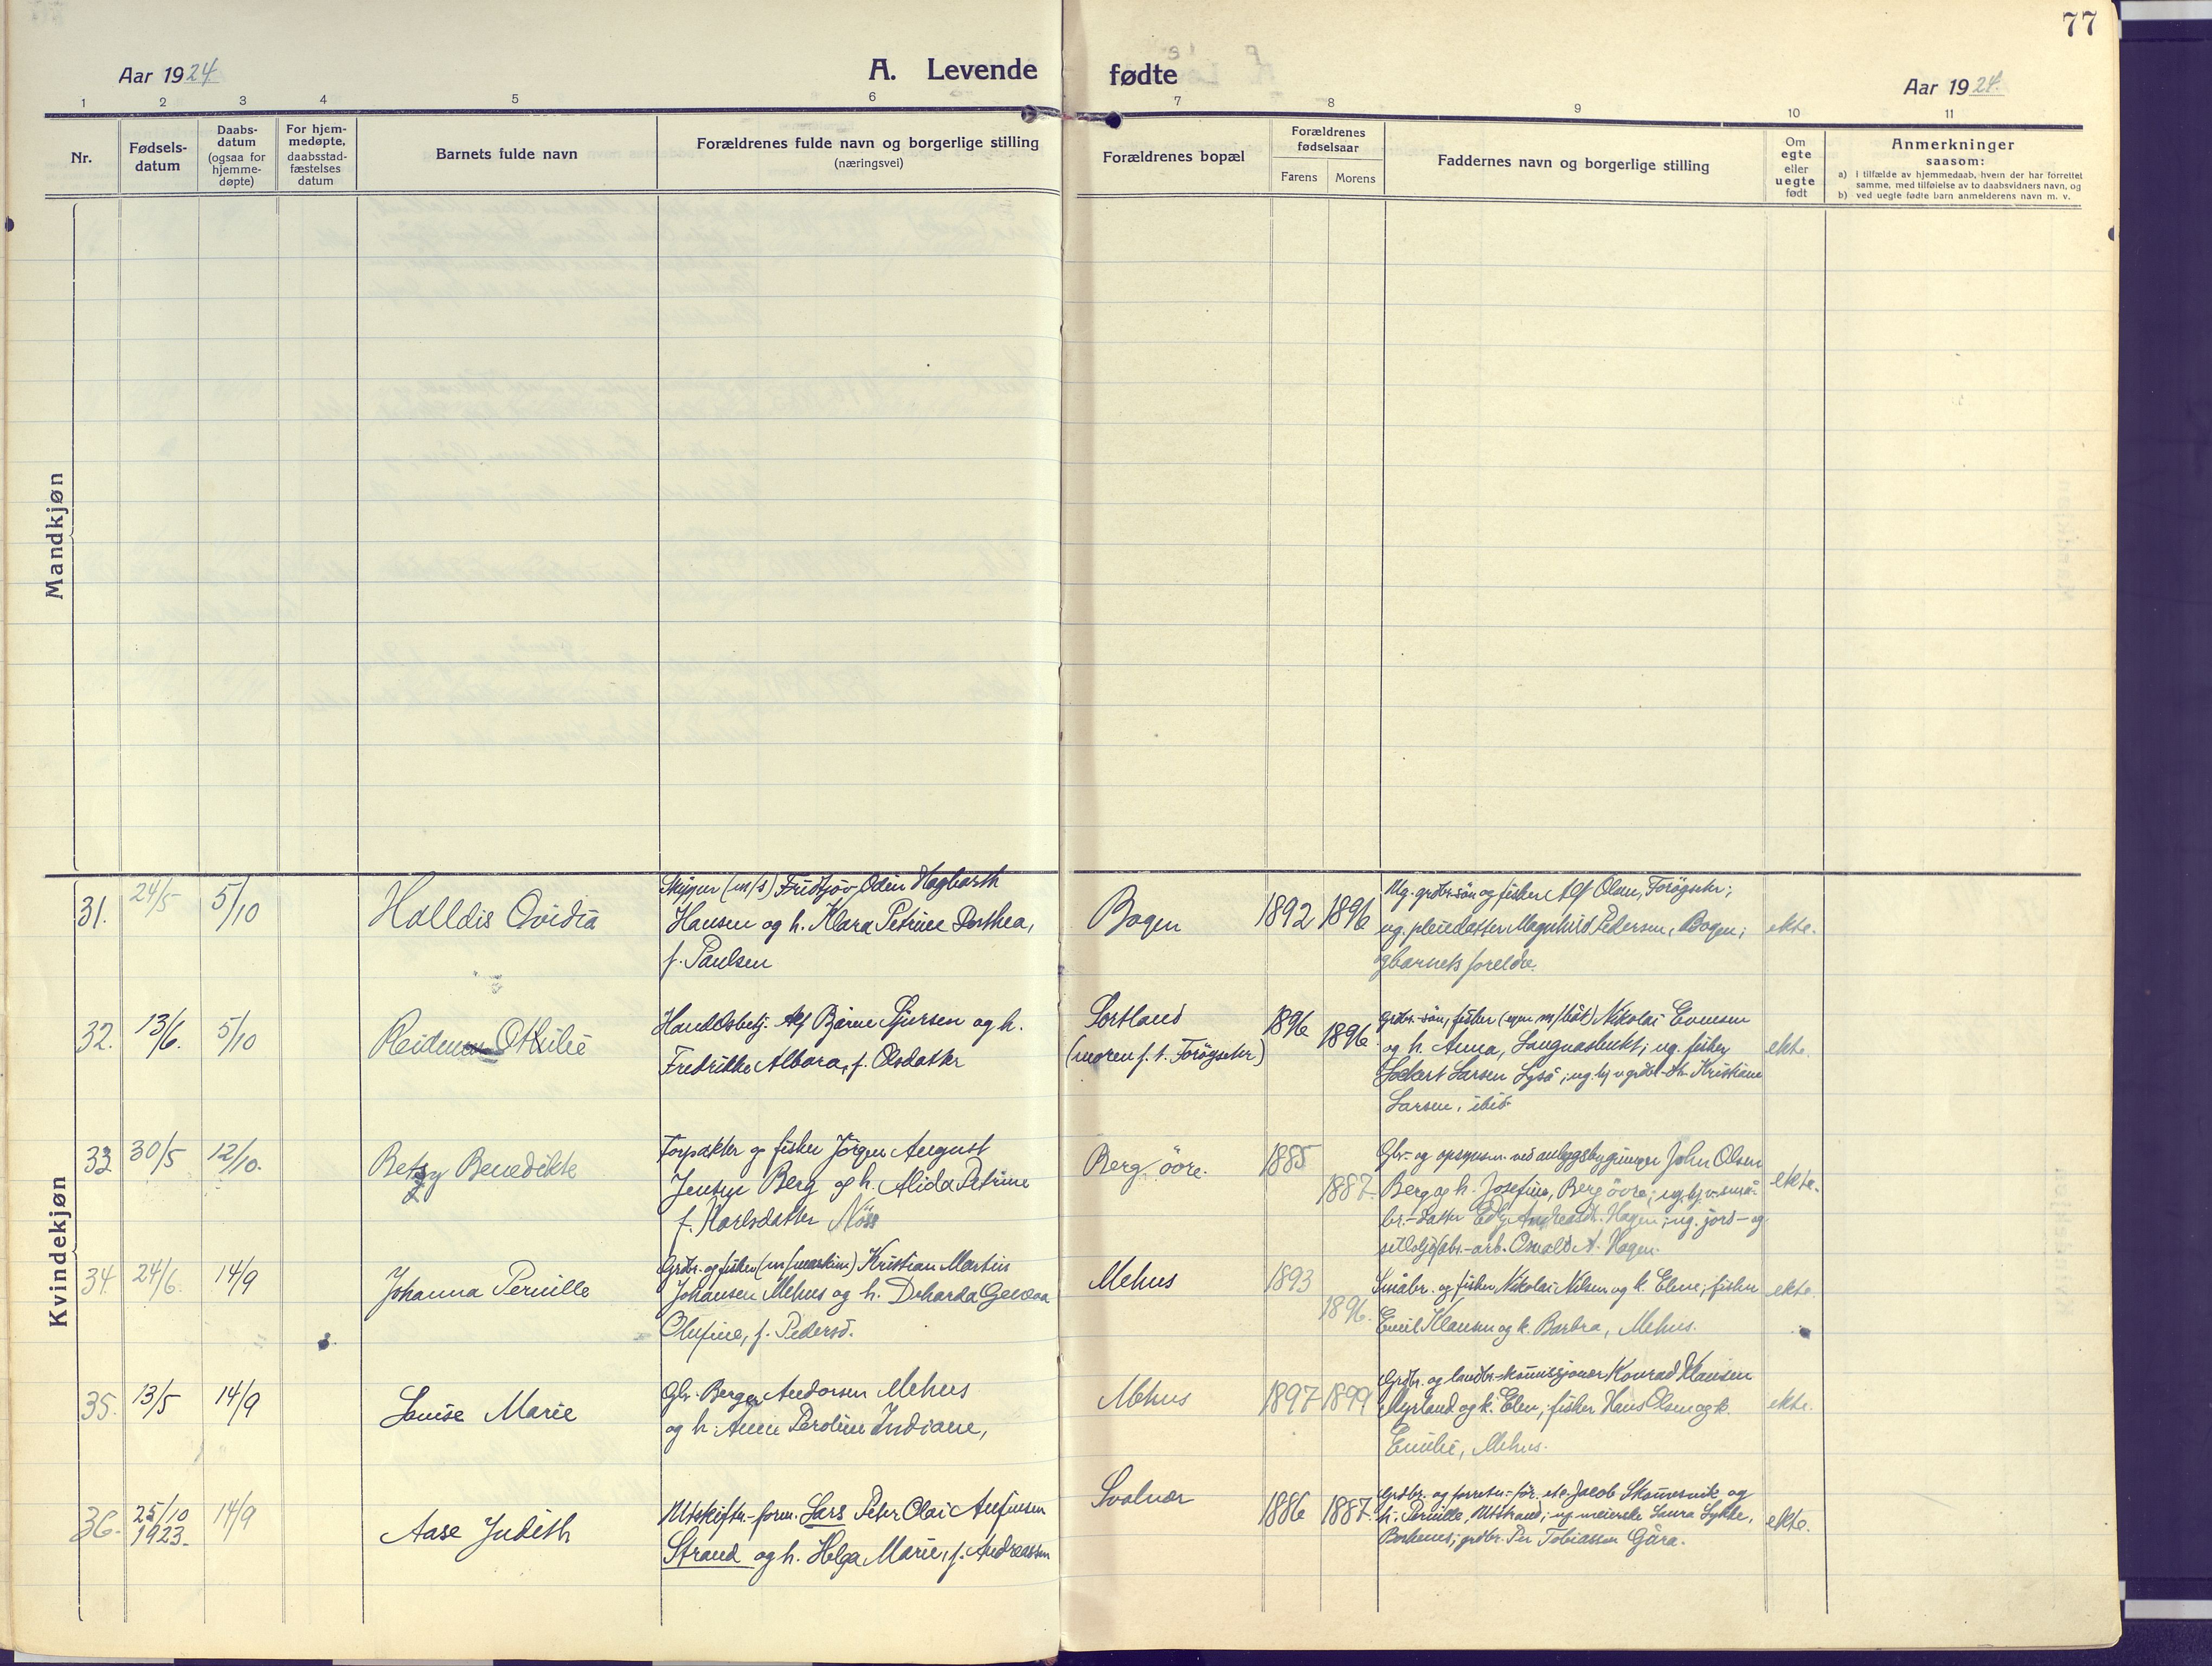 77
Aar 1924
A. Levende fødte
Aar 1924.
1 2 3 4 5 6 7 8 9 10 11
Nr.
Fødsels-
datum
Daabs-
datum
(ogsaa for
hjemme-
døpte)
For hjem-
medøpte,
daabsstad-
fæstelses
datum
Barnets fulde navn
Forældrenes fulde navn og borgerlige stilling
(næringsvei)
Forældrenes bopæl
Forældrenes
fødselsaar
Farens Morens
Faddernes navn og borgerlige stilling
Om
egte
eller
uegte
født
Anmerkninger
saasom:
a) I tilfælde av hjemmedaab, hvem der har forrettet
samme, med tilføielse av to daabsvidners navn, og
b) ved uegte fødte barn anmelderens navn m. v.
Mandkjøn
Kvindekjøn
31. 24/5 5/10
Halldis Ovidia
(m/s) Fridtjov Odin Hagbarth
Hansen og h. Klara Petrine Dorthea,
f. Paulsen
Bogen
1892 1896
Ug. grdbr.-sön og fisker Alf Olsen,
ug. pleiedatter Magnhild Pedersen, Bogen;
og barnets foreldre.
ekte.
32. 13/6. 5/10
Reidun Othilie
Handelsbetj. Alf Bjarne Sjursen og h.
Fredrikke Albara, f. Olsdatter
Sortland
(moren f. t.
1896 1896
grdbr.-sön, fisker (egen m/båt) Nikolai Evensen
og h. Anna, Langnasbukt; ug. fisker
Larsen ; ug. Kristiane
Larsen, ibid.
ekte.
33 30/5 12/10.
Betzy Benedikte
Forpakter og fisker Jörgen August
Jensen Berg og h. Alida Petrine
f. Karlsdatter Nöss
Berg övre.
1885 1887.
Gbr.- og John Olsen
Berg og h. Josefine, Berg övre; ug. hj. v. små-
br.-datter Edly Andreasdt. Hagen; ug. jord- og
Osvald A. Hagen.
ekte.
34. 24/6. 14/9
Johanna Pernille
Grdbr. og fisker Kristian Martin
Johansen Mehus og h.
Olufine, f. Pedersd.
Mehus
1893 1896.
Småbr. og fisker Nikolai Nilsen og k. Elene; fisker
Emil Klausen og k. Barbra, Mehus.
ekte.
35. 13/5 14/9
Louise Marie
Gbr. Berger Andorsen Mehus
og h. Anne Peroline Indiane,
Mehus
1897 1899
Grdbr. og landbr.-kommissjonær Konrad Klausen
Myrland og k. Elen; fisker Hans Olsen og k.
Emilie, Mehus.
ekte.
36. 25/10
1923. 14/9
Aase Judith
Utskiftn.-form. Lars Peter Olai Anfinsen
Strand og h. Helga Marie, f. Andreassen
Svolvær
1886 1887.
Grdbr. og Jacob og
h. Pernille, ; ug. meierske Laura Lykke,
; grdbr. Per Tobiassen Gåra.
ekte.